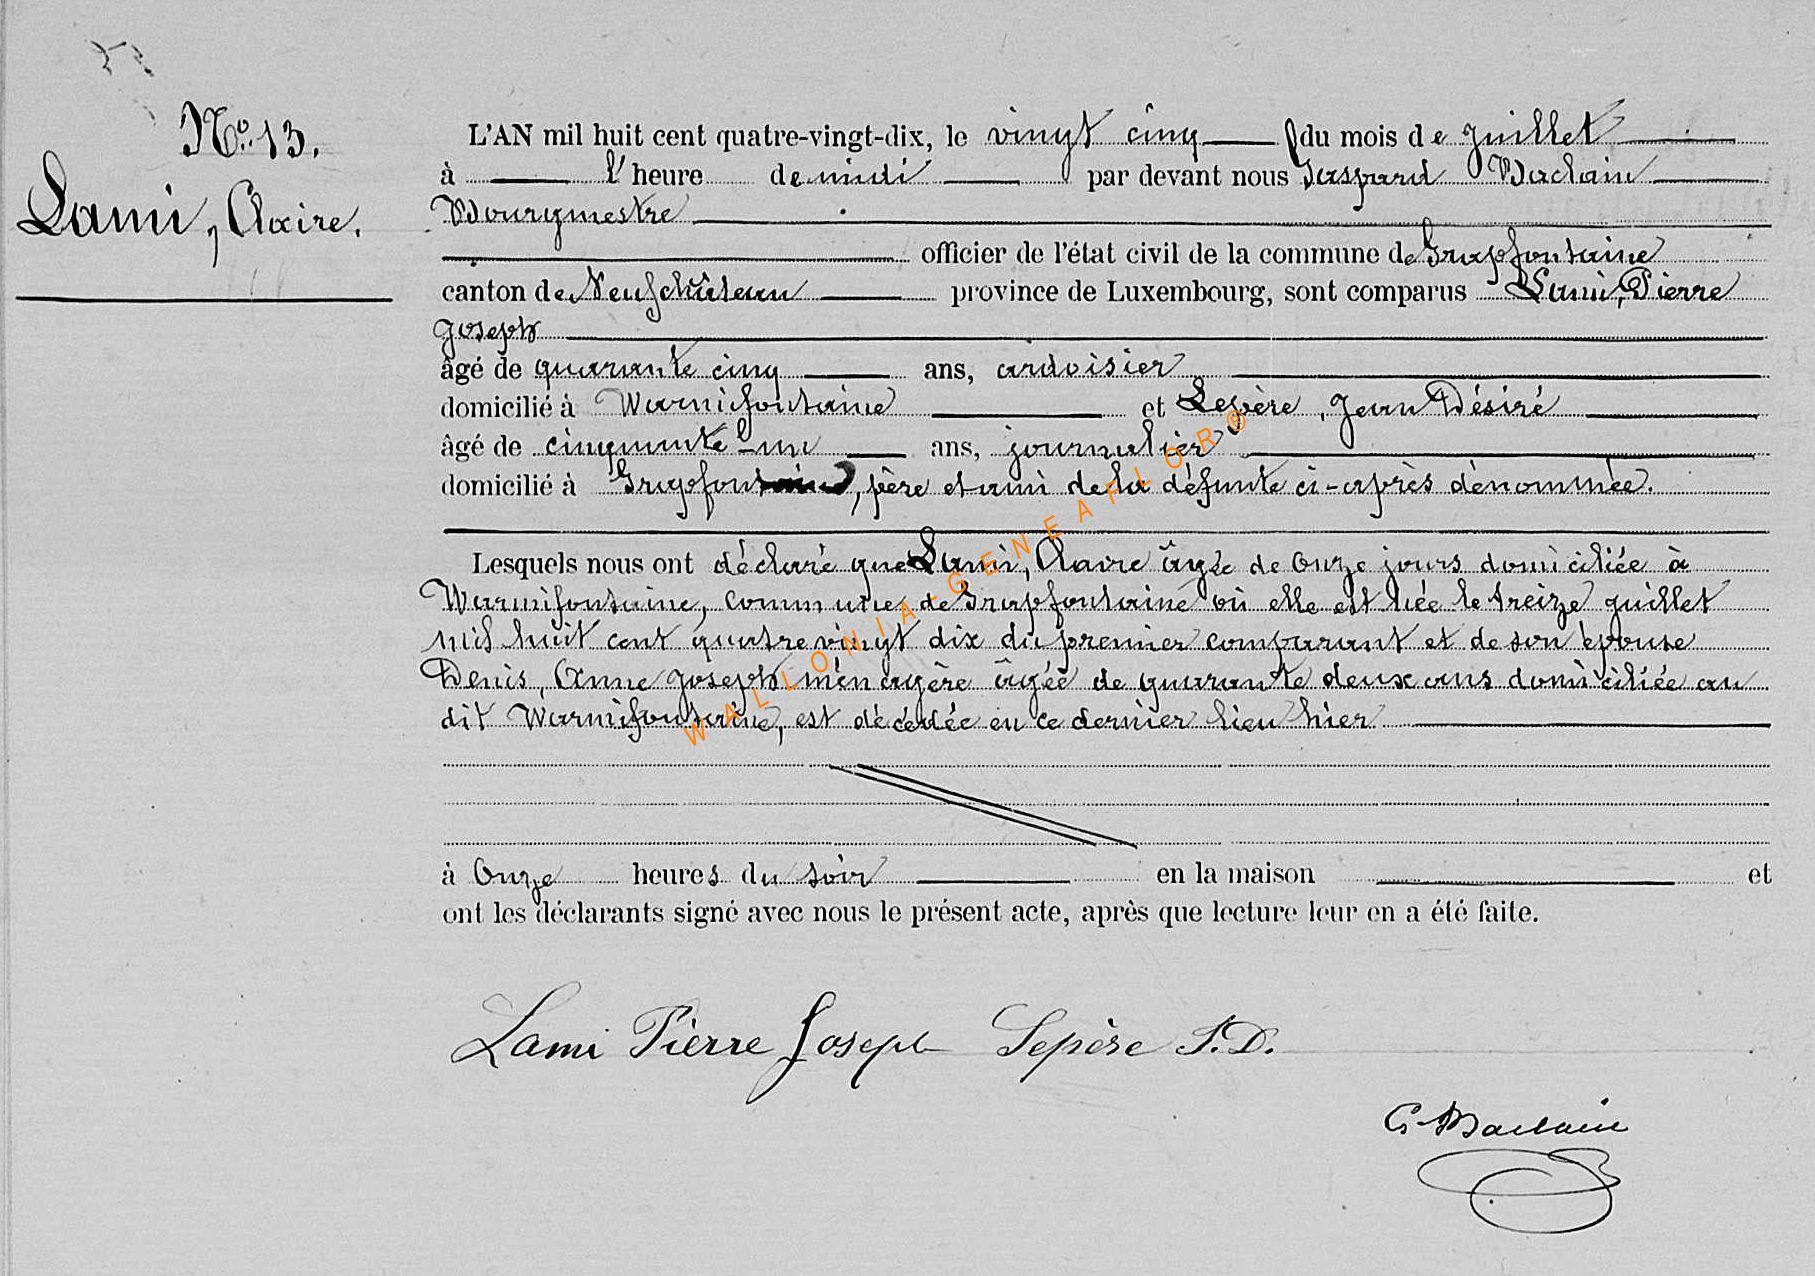 No. 13.
Lami, Claire.
L'AN mil huit cent quatre-vingt-dix, le vingt cinq du mois de juillet
à l'heure de midi par devant nous Gaspard Baclain
Bourgmestre
officier de l'état civil de la commune de Grapfontaine
canton de Neufchâteau province de Luxembourg, sont comparus Lami, Pierre
Joseph
âgé de quarante cinq ans, ardoisier
domicilié à Warmifontaine et Lepère, Jean Désiré
âgé de cinquante-un ans, journalier
domicilié à Grapfontaine, père et ami de la défunte ci-après dénommée.
Lesquels nous ont déclaré que Lami, Claire âgée de onze jours domiciliée à
Warmifontaine, commune de Grapfontaine où elle est née le treize juillet
mil huit cent quatre vingt dix du premier comparant et de son épouse
Denis, Anne Joseph ménagère âgée de quarante deux ans domiciliée au
dit Warmifontaine, est décédée en ce dernier lieu hier
à onze heures du soir en la maison et
ont les déclarants signé avec nous le présent acte, après que lecture leur en a été faite.
Lami Pierre Joseph Lepère J.D.
G. Baclain
WALLONIA-GENEAFLOR®